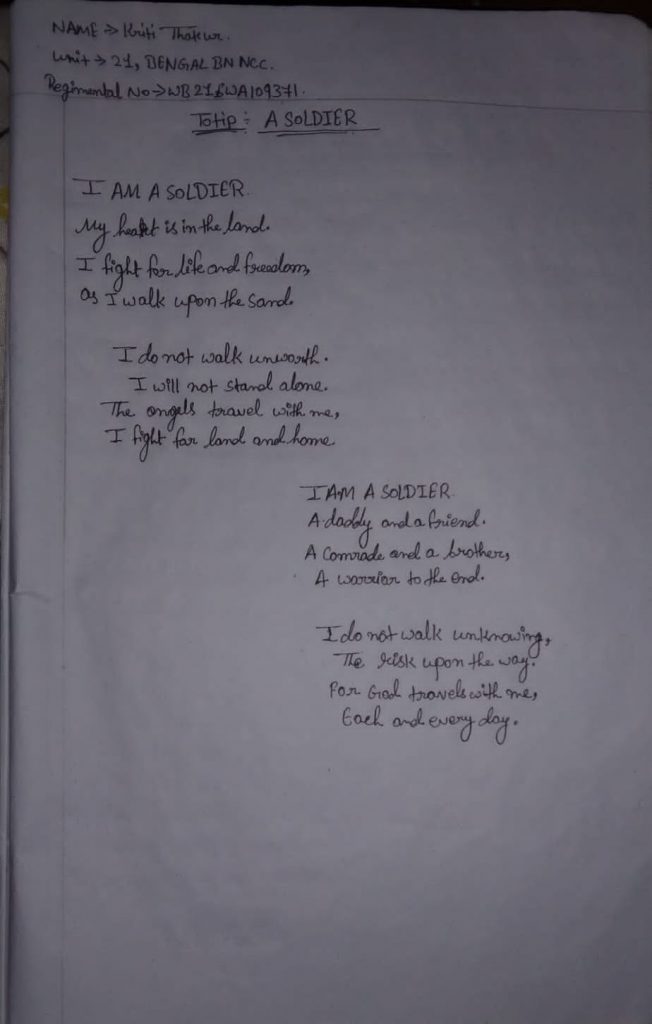 NAME → Kriti Thakur.
Unit → 21, BENGAL BN NCC.
Regimental No → WB21SWA109371.
Totip : A SOLDIER
I AM A SOLDIER.
My heart is in the land.
I fight for life and freedom,
as I walk upon the sand.
I do not walk unworth.
I will not stand alone.
The angels travel with me,
I fight for land and home
I AM A SOLDIER.
A daddy and a friend.
A Comrade and a brother,
A warrior to the end.
I do not walk unknowing,
The risk upon the way.
For God travels with me,
Each and every day.